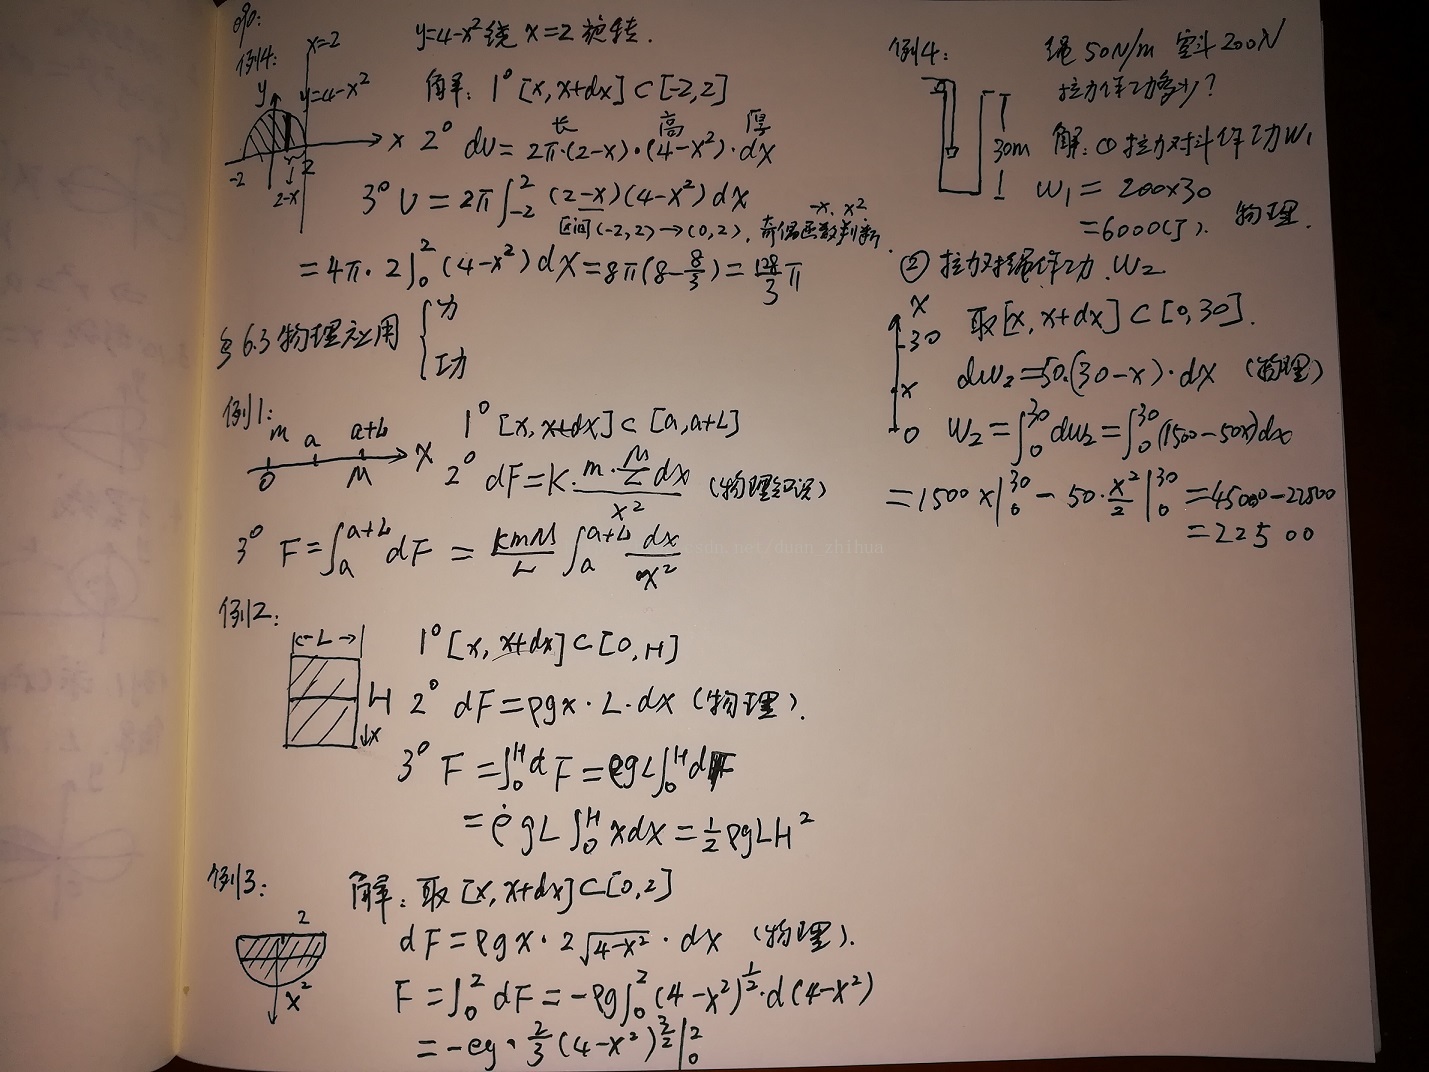 090:
例4:
x=-2
y=4-x²绕 x=2 旋转.
y
y=4-x²
x
-2
2
2-x
解: 1° [x, x+dx] ⊂ [-2,2]
长 高 厚
2° dv = 2π·(2-x)·(4-x²)·dx
3° V = 2π∫₋₂² (2-x)(4-x²)dx
-x, x²
区间(-2,2)→(0,2), 奇偶函数判断.
= 4π·2∫₀²(4-x²)dx = 8π(8-8/3) = 128/3 π
§6.3 物理应用 { 力
功
例1:
m a a+L
0 M x
1° [x, x+dx] ⊂ [a, a+L]
2° dF = K·(m·M/L dx)/x² (物理知识)
3° F = ∫ₐᵃ⁺ᴸ dF = kmM/L ∫ₐᵃ⁺ᴸ dx/x²
例2:
L
H
x
1° [x, x+dx] ⊂ [0, H]
2° dF = ρgx·L·dx (物理).
3° F = ∫₀ᴴ dF = ρgL∫₀ᴴ dF
= ρgL ∫₀ᴴ xdx = ½ρgLH²
例3:
2
x 2
解: 取 [x, x+dx] ⊂ [0,2]
dF = ρgx·2√(4-x²)·dx (物理).
F = ∫₀² dF = -ρg∫₀²(4-x²)^(1/2)·d(4-x²)
= -ρg·2/3(4-x²)^(3/2)|₀²
例4:
绳 50N/m 空斗 200N
拉力作功多少?
30m
解: ① 拉力对斗作功W₁
W₁ = 200×30
= 6000(J). 物理.
② 拉力对绳作功.W₂
x
30
x
0
取[x, x+dx] ⊂ [0,30].
dw₂=50·(30-x)·dx (物理)
W₂ = ∫₀³⁰dw₂ = ∫₀³⁰(1500-50x)dx
= 1500x|₀³⁰ - 50·x²/2|₀³⁰ = 45000-22500
= 22500
sdn.net/duan_zhihua